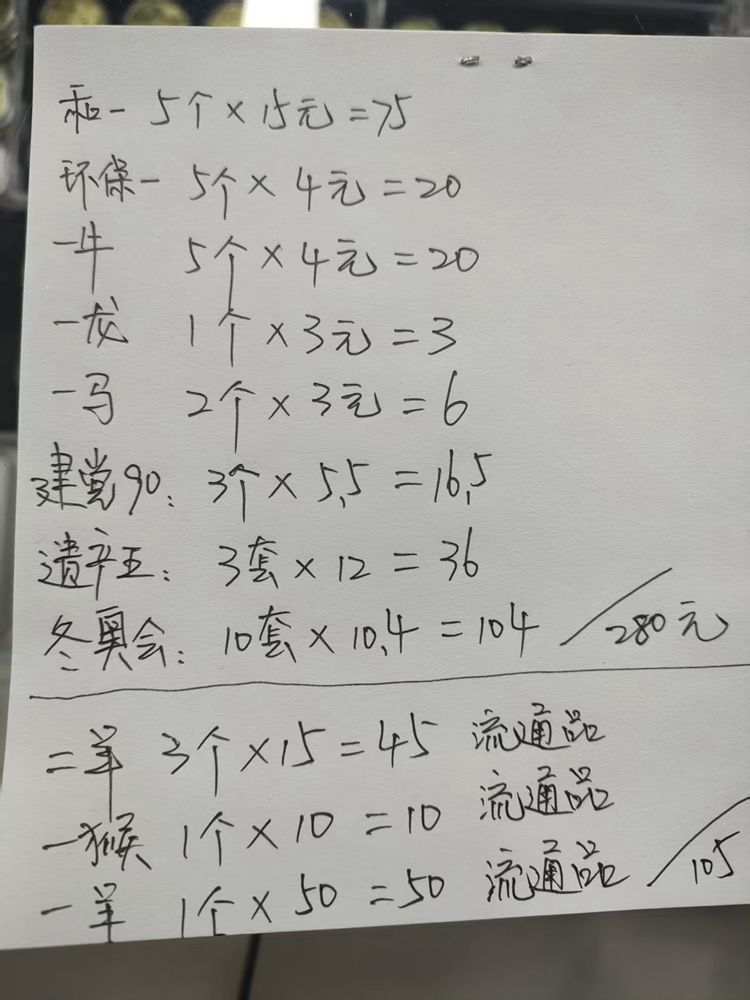 和一 5个×15元=75
环保一 5个×4元=20
一牛 5个×4元=20
一龙 1个×3元=3
一马 2个×3元=6
建党90: 3个×5.5=16.5
遗产五: 3套×12=36
冬奥会: 10套×10.4=104 /280元
二羊 3个×15=45 流通品
一猴 1个×10=10 流通品
一羊 1个×50=50 流通品 /105